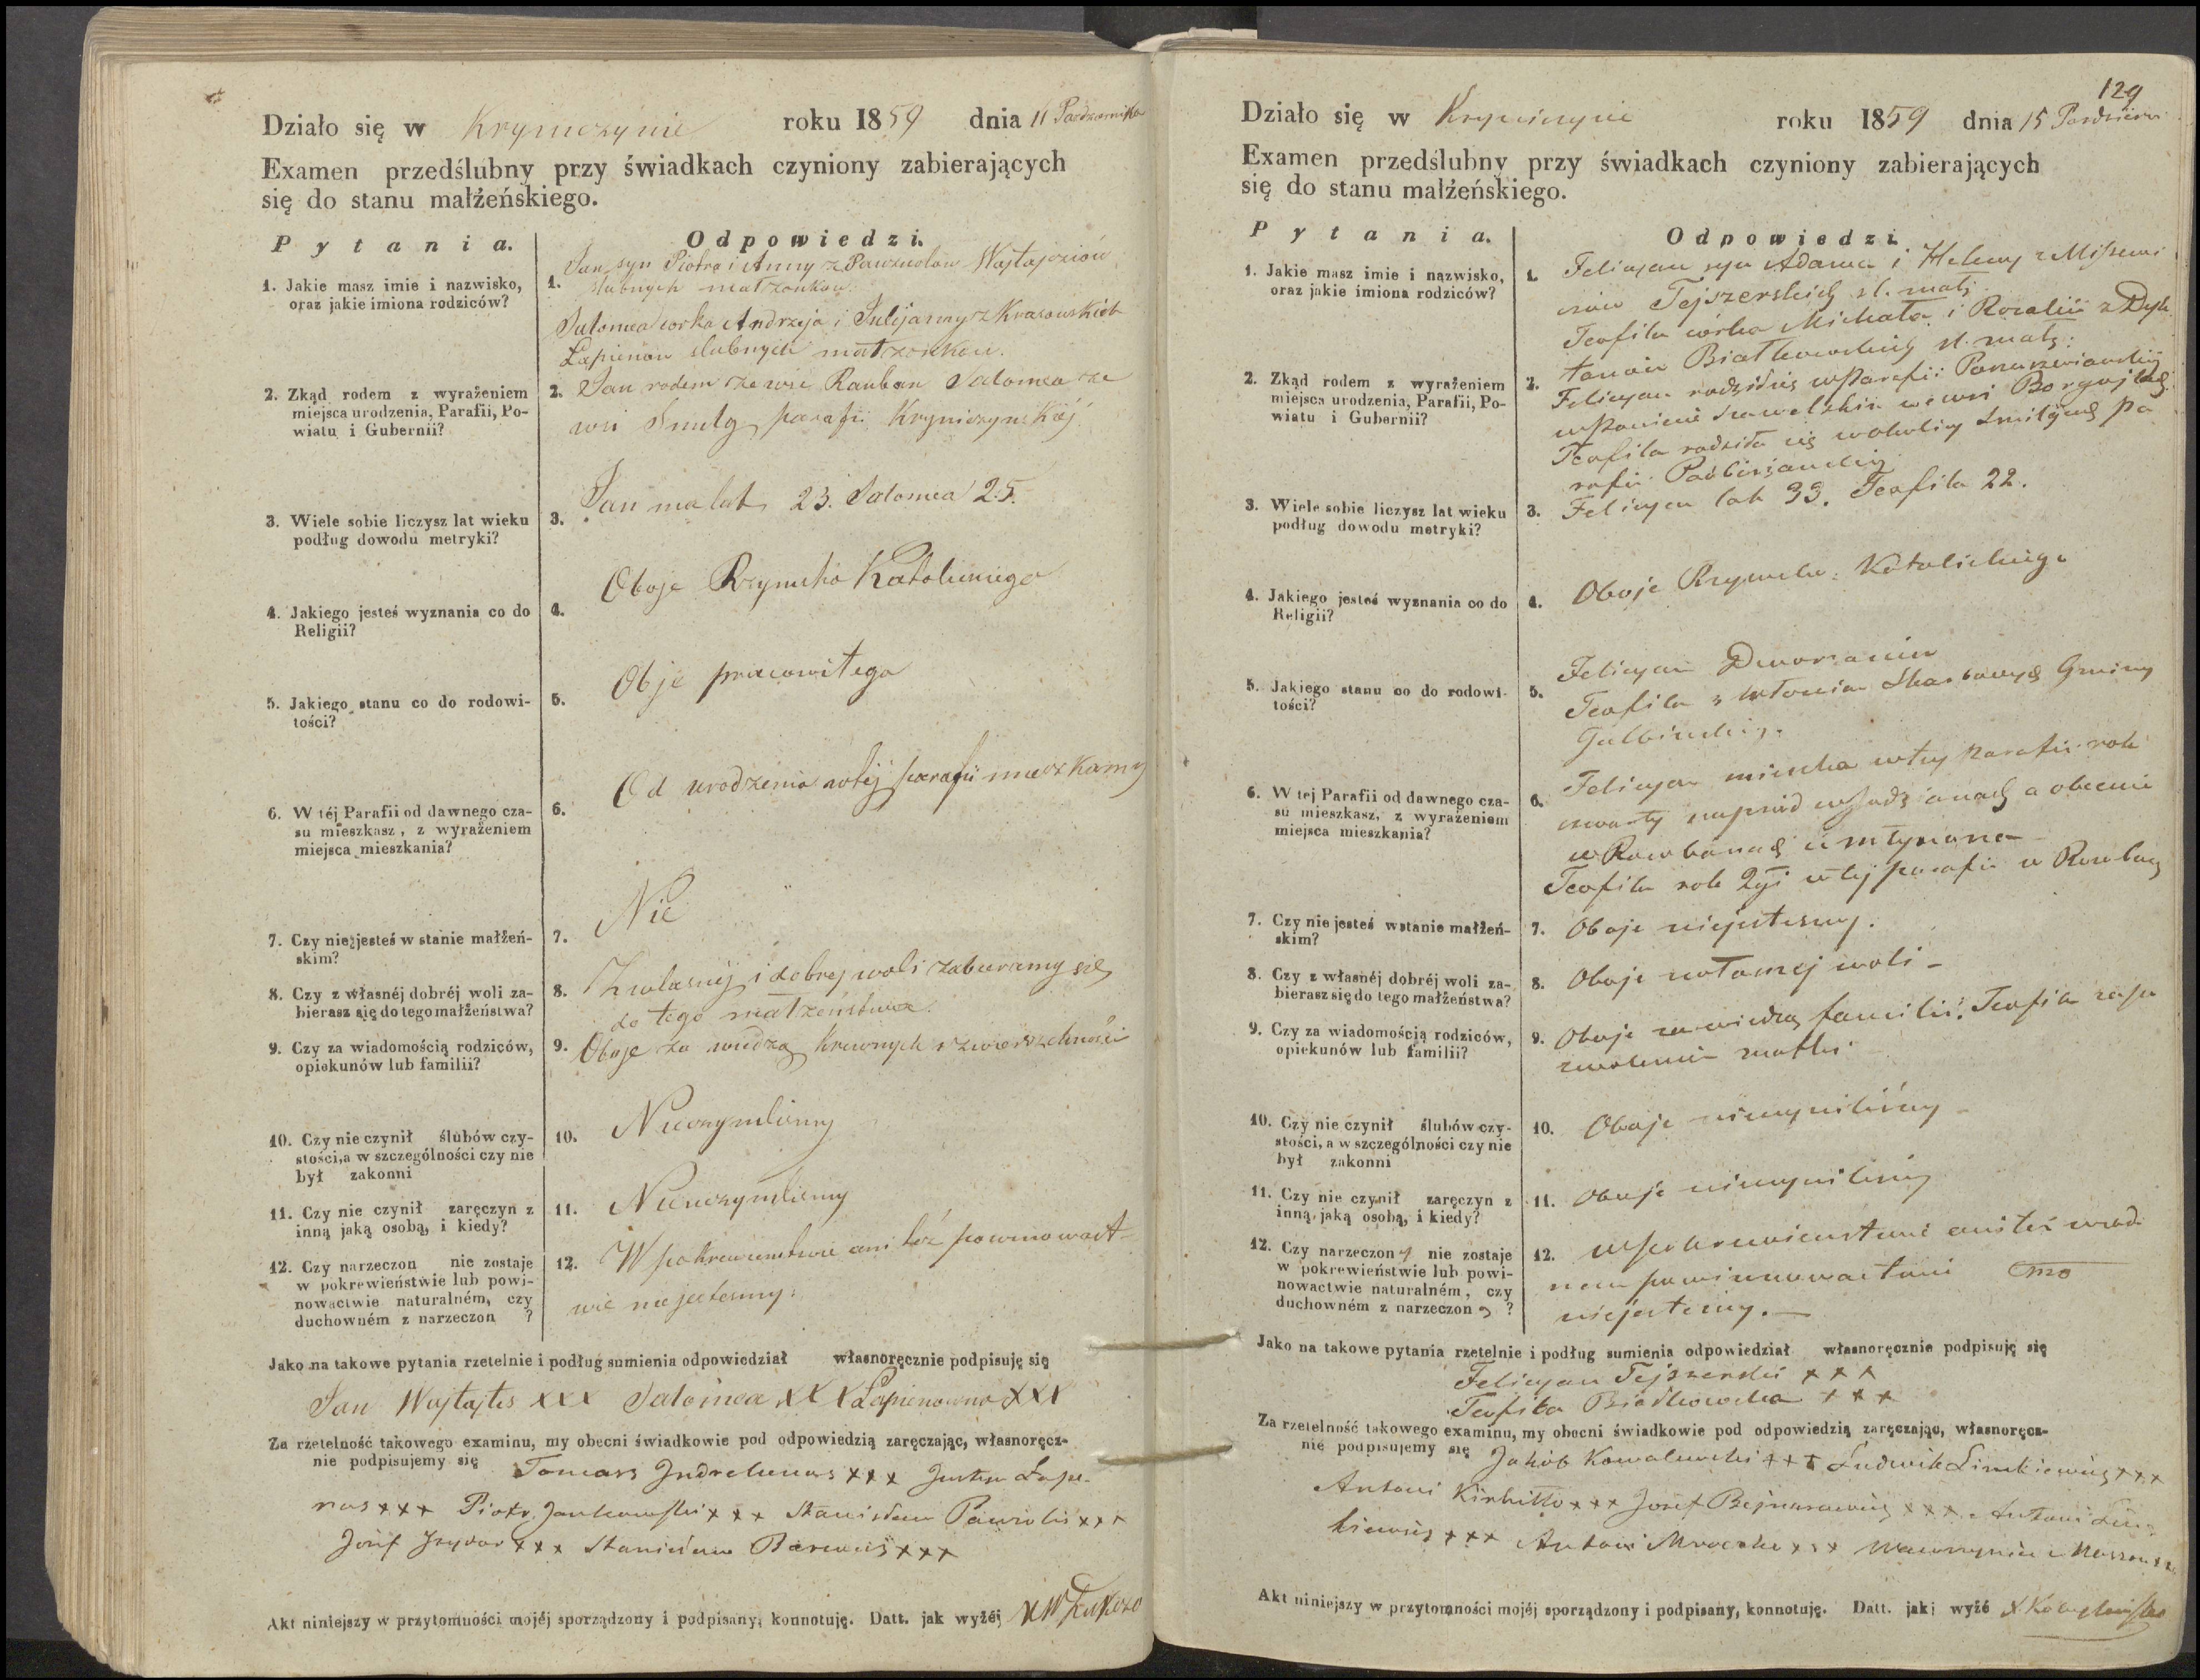 Działo się w Kryniczynie roku 1859 dnia 11 Pazdziernika
Examen przedślubny przy świadkach czyniony zabierających
się do stanu małżeńskiego.
Pytania.
Odpowiedzi.
1. Jakie masz imie i nazwisko,
oraz jakie imiona rodziców?
1. Jan syn Piotra i Anny z
slubnych małzonkow.
Salomea corka Andrzeja i Julijanny z Krasowskich
Łapienow slubnych małzonkow.
2. Zkąd rodem z wyrażeniem
miejsca urodzenia, Parafii, Po-
wiatu i Gubernii?
2. Jan rodem ze wsi Rauban Salomea ze
wsi Smilg parafii Kryniczynskiej
3. Wiele sobie liczysz lat wieku
podług dowodu metryki?
3. Jan ma lat 23. Salomea 25.
4. Jakiego jesteś wyznania co do
Religii?
4. Oboje Rzymsko Katolickiego
5. Jakiego stanu co do rodowi-
tości?
5. Obje pracowitego
6. W téj Parafii od dawnego cza-
su mieszkasz, z wyrażeniem
miejsca mieszkania?
6. Od urodzenia w tej parafii mieszkamy
7. Czy nie jesteś w stanie małżeń-
skim?
7. Nie
8. Czy z własnéj dobréj woli za-
bierasz się do tego małżeństwa?
8. Z wlasnej i dobrej woli zabieramy się
do tego małzeństwa.
9. Czy za wiadomością rodziców,
opiekunów lub familii?
9. Oboje za wiedzą krewnych i zwierzchności
10. Czy nie czynił ślubów czy-
stości, a w szczególności czy nie
był zakonni
10. Nieczyniliśmy
11. Czy nie czynił zaręczyn z
inną jaką osobą, i kiedy?
11. Nieczyniliśmy
12. Czy narzeczon nie zostaje
w pokrewieństwie lub powi-
nowactwie naturalném, czy
duchowném z narzeczon ?
12. W pokrewienstwie ani też powinowact-
wie nie jesteśmy.
Jako na takowe pytania rzetelnie i podług sumienia odpowiedział własnoręcznie podpisuję się
Jan Wajtajtis xxx Salomea xxx Łapienowna xxx
Za rzetelność takowego examinu, my obecni świadkowie pod odpowiedzią zaręczając, własnoręcz-
nie podpisujemy się Tomasz xxx Justyn Łapie-
nas xxx Piotr Jankowski xxx Stanisław xxx
Józef xxx Stanisław xxx
Akt niniejszy w przytomności mojéj sporządzony i podpisany, konnotuję. Datt. jak wyżéj
129
Działo się w Krynicynie roku 1859 dnia 15 Pazdziern
Examen przedślubny przy świadkach czyniony zabierających
się do stanu małżeńskiego.
Pytania.
Odpowiedzi.
1. Jakie masz imie i nazwisko,
oraz jakie imiona rodziców?
1. Felicyan syn Adama i Heleny z
Tejszerskich sl. małż
Teofila córka Michała i Rozalii z
Białkowskich sl. małż:
2. Zkąd rodem z wyrażeniem
miejsca urodzenia, Parafii, Po-
wiatu i Gubernii?
2. Felicyan rodził się w Parafii
w Powiecie Szawelskim we wsi
Teofila rodziła się w okolicy Smilgiach pa-
rafii
3. Wiele sobie liczysz lat wieku
podług dowodu metryki?
3. Felicyan lat 33. Teofila 22.
4. Jakiego jesteś wyznania co do
Religii?
4. Oboje Rzymsko: Katolickiego
5. Jakiego stanu co do rodowi-
tości?
5. Felicyan Dworzanin
Teofila z włościan Skarbowych Gminy
6. W tej Parafii od dawnego cza-
su mieszkasz, z wyrażeniem
miejsca mieszkania?
6. Felicyan mieszka w tej parafii rok
czwarty naprzód w a obecnie
w Rowbanach u młynarza
Teofila rok 2gi w tej parafii w
7. Czy nie jesteś w stanie małżeń-
skim?
7. Oboje niejesteśmy.
8. Czy z własnéj dobréj woli za-
bierasz się do tego małżeństwa?
8. Oboje z własnej woli -
9. Czy za wiadomością rodziców,
opiekunów lub familii?
9. Oboje za wiedzą familii. Teofila za po
zwoleniem matki
10. Czy nie czynił ślubów czy-
stości, a w szczególności czy nie
był zakonni
10. Oboje nieczyniliśmy -
11. Czy nie czynił zaręczyn z
inną jaką osobą, i kiedy?
11. Oboje nieczyniliśmy
12. Czy narzeczony nie zostaje
w pokrewieństwie lub powi-
nowactwie naturalném, czy
duchowném z narzeczoną ?
12. w pokrewieństwie ani też w żad-
nem powinowactwie
niejesteśmy.
Jako na takowe pytania rzetelnie i podług sumienia odpowiedział własnoręcznie podpisuję się
Felicyan Tejszerski xxx
Teofila Białkowska xxx
Za rzetelność takowego examinu, my obecni świadkowie pod odpowiedzią zaręczając, własnoręcz-
nie podpisujemy się Jakób Kowalewski xxx Ludwik Limkiewicz xxx
Antoni Kirkiłło xxx Józef xxx Antoni Lim-
kiewicz xxx Antoni xxx Wawrzyniec
Akt niniejszy w przytomności mojéj sporządzony i podpisany, konnotuję. Datt. jak wyżé